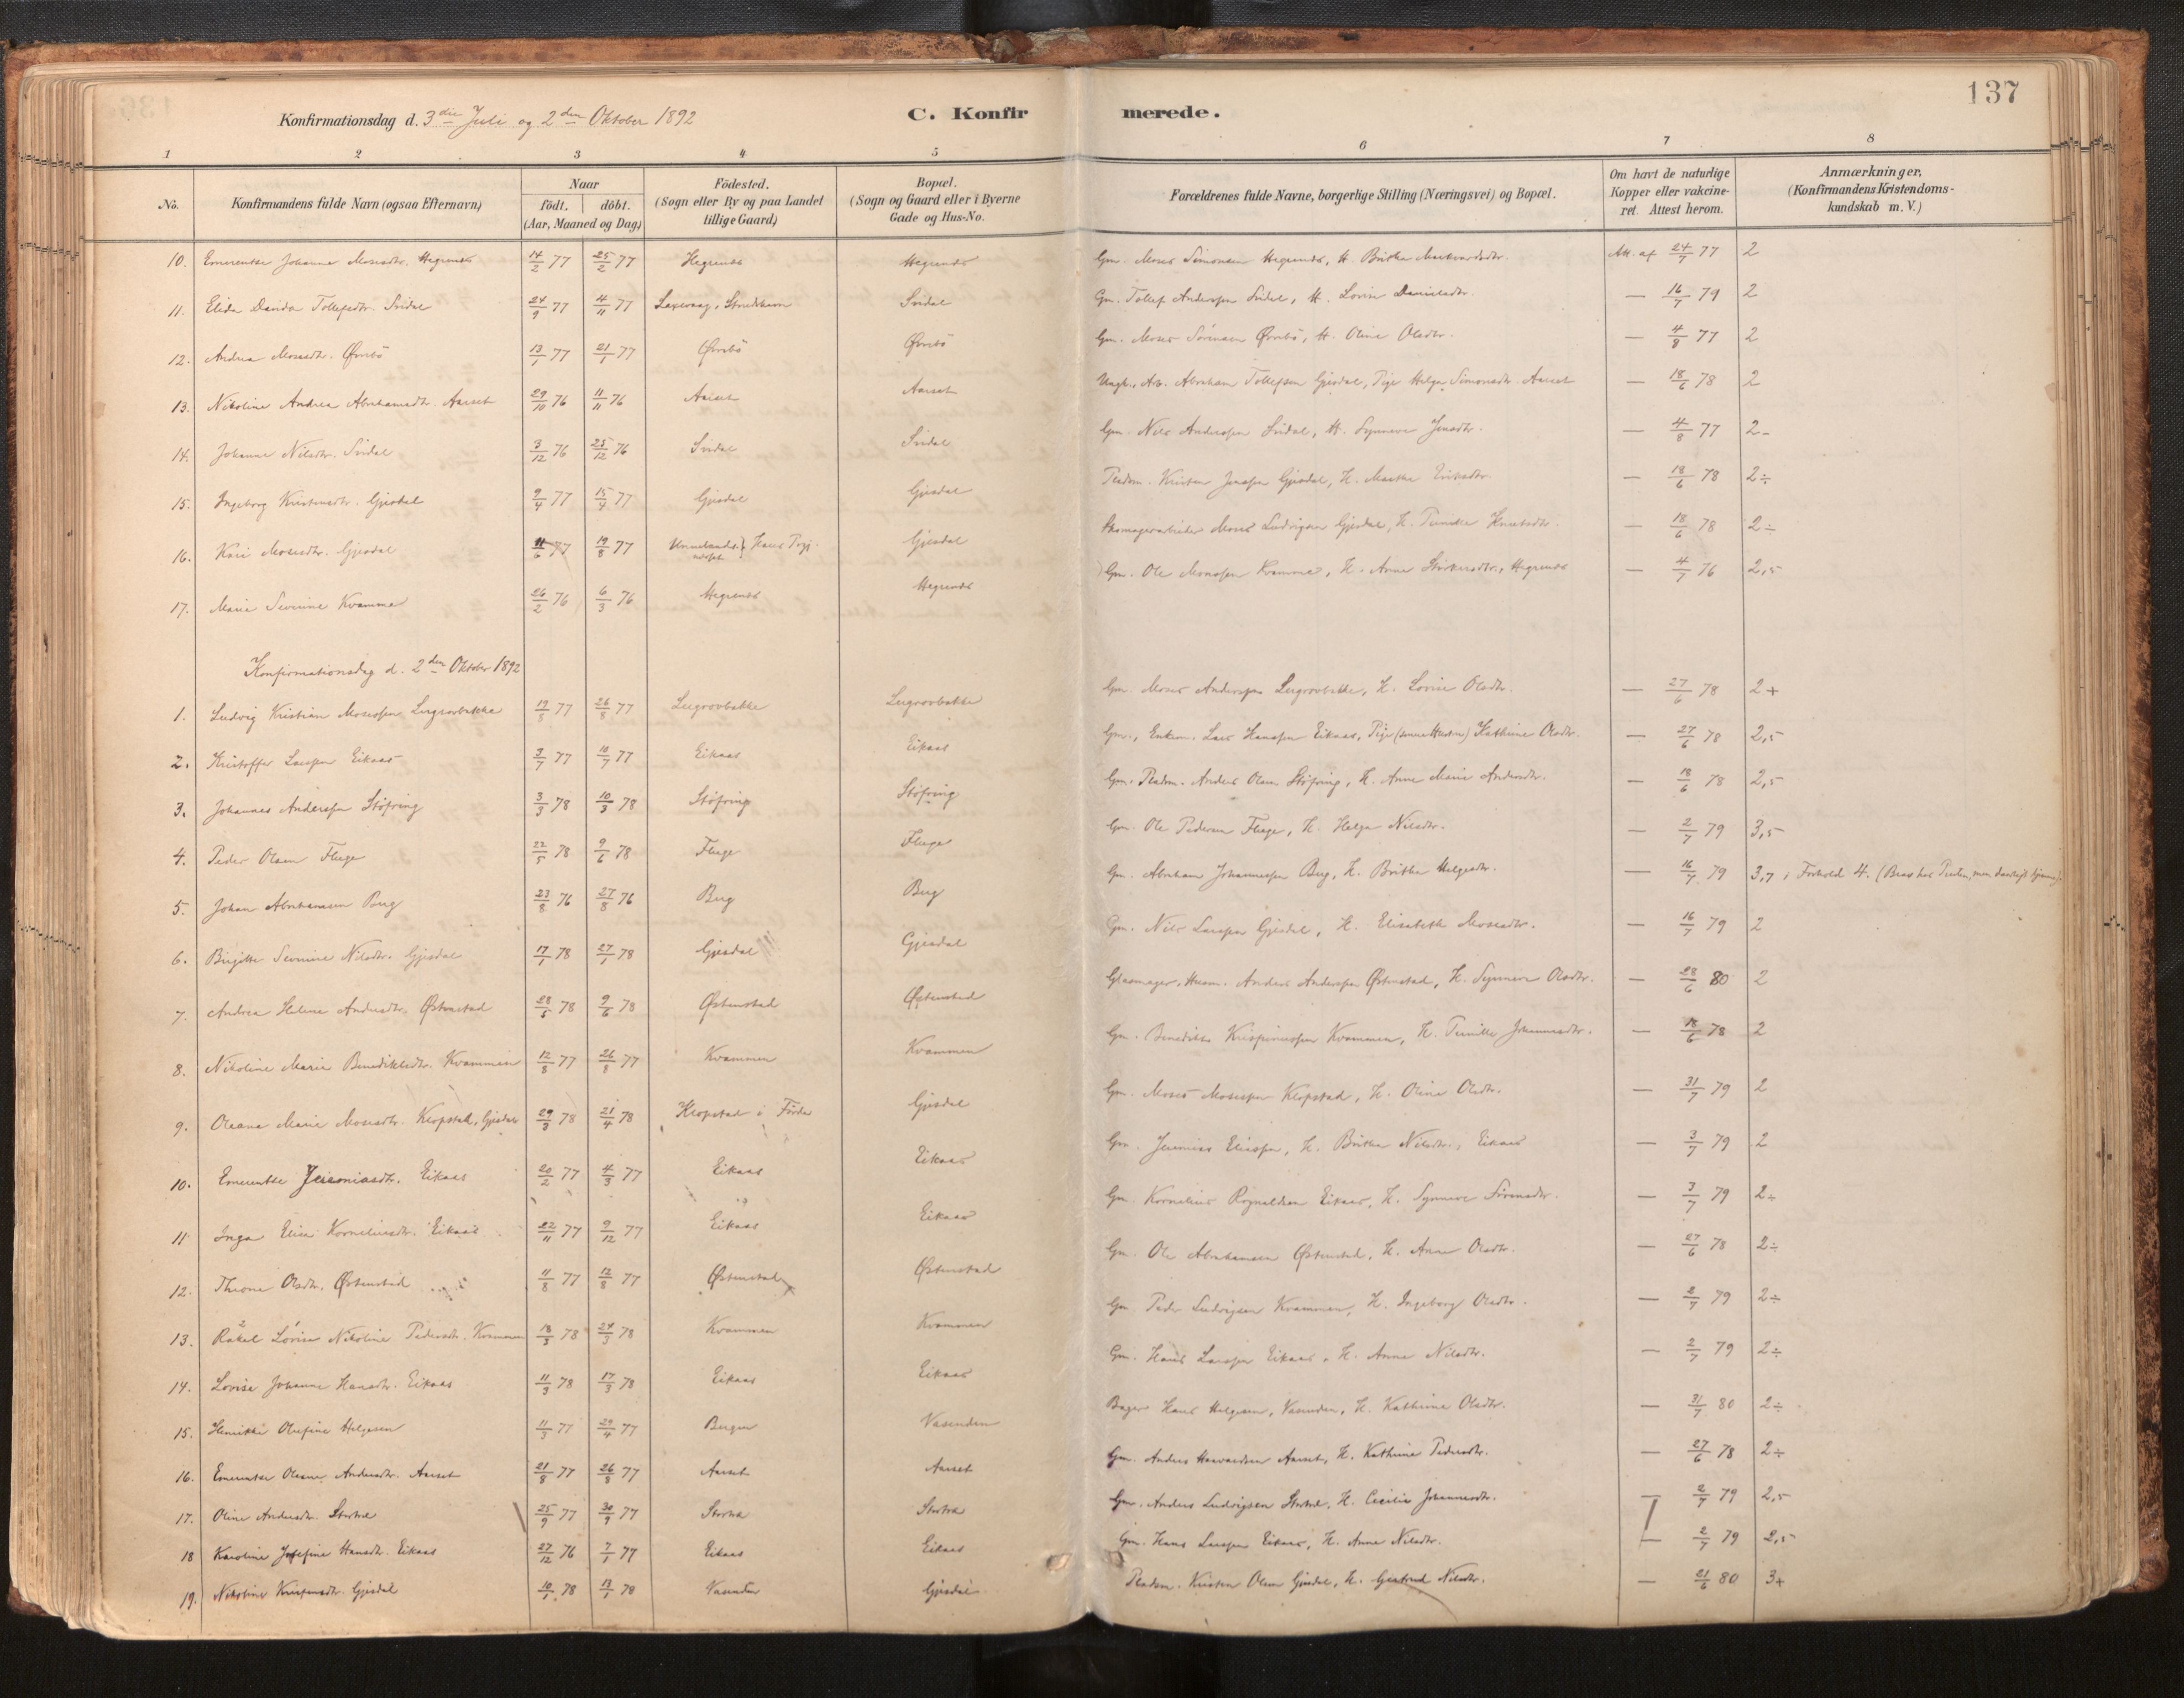 137
Konfirmationsdag d. 3die Juli og 2den Oktober 1892
C. Konfirmerede.
1 2 3 4 5 6 7 8
No.
Konfirmandens fulde Navn (ogsaa Efternavn)
Naar
födt. döbt.
(Aar, Maaned og Dag)
Födested.
(Sogn eller By og paa Landet
tillige Gaard)
Bopæl.
(Sogn og Gaard eller i Byerne
Gade og Hus-No.
Forældrenes fulde Navne, borgerlige Stilling (Næringsvei) og Bopæl.
Om havt de naturlige
Kopper eller vakcine-
ret. Attest herom.
Anmærkninger,
(Konfirmandens Kristendoms-
kundskab m. V.)
10. Emerentse Johanne Mosesdtr. Hegrenes 14/2 77 25/2 77 Hegrenes Hegrenes Gm. Moses Simonsen Hegrenes, H. Brithe Att. af 24/7 77 2
11. Elida Tollefsdtr. Svidal 24/9 77 4/11 77 Laxevaag, Svidal Gm. Tollef Andersen Svidal, H. Lovise Danielsdtr. — 16/7 79 2
12. Andrea Mosesdtr. Ørnebö 13/1 77 21/1 77 Ørnebö Ørnebö Gm. Moses Sörensen Ørnebö, H. Oline Olsdtr. — 4/8 77 2
13. Nikoline Andrea Abrahamsdtr. Aarset 29/10 76 11/11 76 Aarset Aarset Ungk., Arb. Abraham Tollefsen Gjesdal, Pige Helga Simonsdtr. Aarset — 18/6 78 2
14. Johanne Nilsdtr. Svidal 3/12 76 25/12 76 Svidal Svidal Gm. Nils Andersen Svidal, H. Synneve Jensdtr. — 4/8 77 2-
15. Ingeborg Kristensdtr. Gjesdal 9/4 77 15/4 77 Gjesdal Gjesdal Pladsm. Kristen Gjesdal, H. Marthe — 18/6 78 2÷
16. Kari Mosesdtr. Gjesdal 11/6 77 19/8 77 Gjesdal Skomagerarbeider Moses Ludvigsen Gjesdal, H. Knutsdtr. — 18/6 78 2÷
17. Marie Severine Kvamme 26/2 76 6/3 76 Hegrenes Hegrenes Gm. Ole Monssen Kvamme, H. Anne Hegrenes — 4/7 76 2,5
Konfirmationsdag d. 2den Oktober 1892
1. Ludvig Kristian Mosessen Lugrovbakke 19/8 77 26/8 77 Lugrovbakke Lugrovbakke Gm. Moses Anderssen Lugrovbakke, H. Lovise Olsdtr. — 27/6 78 2+
2. Kristoffer Larssen Eikaas 3/7 77 10/7 77 Eikaas Eikaas Gm., Enkem. Lars Hanssen Eikaas, Pige Kathrine Olsdtr. — 27/6 78 2,5
3. Johannes Anderssen Støfring 3/3 78 10/3 78 Støfring Støfring Gm. Pladsm. Anders Olsen Støfring, H. Anne Marie Andersdtr. — 18/6 78 2,5
4. Peder Olsen Fluge 22/5 78 9/6 78 Fluge Fluge Gm. Ole Pedersen Fluge, H. Helga Nilsdtr. — 2/7 79 3,5
5. Johan Abrahamsen Berg 23/8 76 27/8 76 Berg Berg Gm. Abraham Johannessen Berg, H. Brithe Helgesdtr. — 16/7 79 3,7 i Forhold 4. (Brav hos Presten, men
6. Birgitte Severine Nilsdtr. Gjesdal 17/1 78 27/1 78 Gjesdal Gjesdal Gm. Nils Larssen Gjesdal, H. Elisabeth Mosesdtr. — 16/7 79 2
7. Andrea Helene Andersdtr. Østenstad 28/5 78 9/6 78 Østenstad Østenstad Glasmager, Husm. Anders Anderssen Østenstad, H. Synneve Olsdtr. — 28/6 80 2
8. Nikoline Marie Benediktsdtr. Kvammen 12/8 77 26/8 77 Kvammen Kvammen Gm. Benedikt Krispinussen Kvammen, H. Pernille Johannesdtr. — 18/6 78 2
9. Oleana Marie Mosesdtr. Klopstad, Gjesdal 29/3 78 21/4 78 Klopstad i Förde Gjesdal Gm. Moses Mosessen Klopstad, H. Oline Olsdtr. — 31/7 79 2
10. Emerentse Jeremiasdtr. Eikaas 20/2 77 4/3 77 Eikaas Eikaas Gm. Jeremias Eliassen, H. Brithe Nilsdtr., Eikaas — 3/7 79 2
11 Inga Elise Korneliusdtr. Eikaas 22/11 77 9/12 77 Eikaas Eikaas Gm. Kornelius Rognaldsen Eikaas, H. Synneve Sörensdtr. — 3/7 79 2÷
12. Olsdtr. Østenstad 11/8 77 12/8 77 Østenstad Østenstad Gm. Ole Abrahamsen Østenstad, H. Anne Olsdtr. — 27/6 78 2÷
13. Rakel Lovise Nikoline Pedersdtr. Kvammen 18/3 78 24/3 78 Kvammen Kvammen Gm. Peder Ludvigsen Kvammen, H. Ingeborg Olsdtr. — 2/7 79 2÷
14. Lovise Johanne Hansdtr. Eikaas 11/3 78 17/3 78 Eikaas Eikaas Gm. Hans Larssen Eikaas, H. Anne Nilsdtr. — 2/7 79 2÷
15. Henrikke Olufine Helgesen 11/3 77 29/4 77 Bergen Vasenden Bager Hans Helgesen, Vasenden, H. Kathrine Olsdtr. — 31/7 80 2÷
16. Emerentse Oleane Andersdtr. Aarset 21/8 77 26/8 77 Aarset Aarset Gm. Anders Haavardsen Aarset, H. Kathrine Pedersdtr. — 27/6 78 2÷
17. Oline Andersdtr. Stortræ 25/9 77 30/9 77 Stortræ Stortræ Gm. Anders Ludvigsen Stortræ, H. Cecilie Johannesdtr. — 2/7 79 2,5
18 Karoline Josefine Hansdtr. Eikaas 27/12 76 7/1 77 Eikaas Eikaas Gm. Hans Larssen Eikaas, H. Anne Nilsdtr. — 2/7 79 2,5
19. Nikoline Kristensdtr. Gjesdal 10/1 78 13/1 78 Vasenden Gjesdal Pladsm. Kristen Olsen Gjesdal, H. Gjertrud Nilsdtr. — 21/6 80 3+